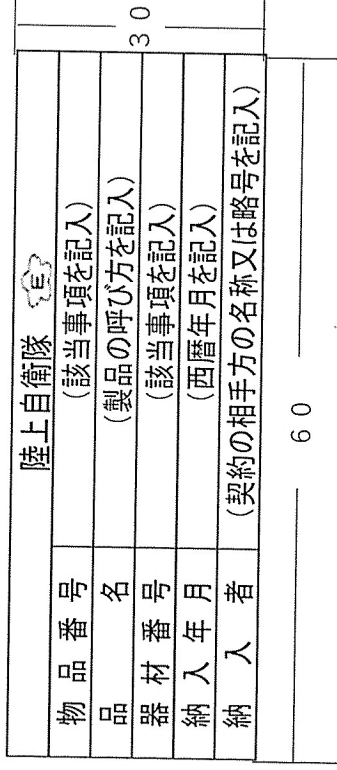 陸上自衛隊 E
物品番号 (該当事項を記入)
品名 (製品の呼び方を記入)
器材番号 (該当事項を記入)
納入年月 (西暦年月を記入)
納入者 (契約の相手方の名称又は略号を記入)
30
60